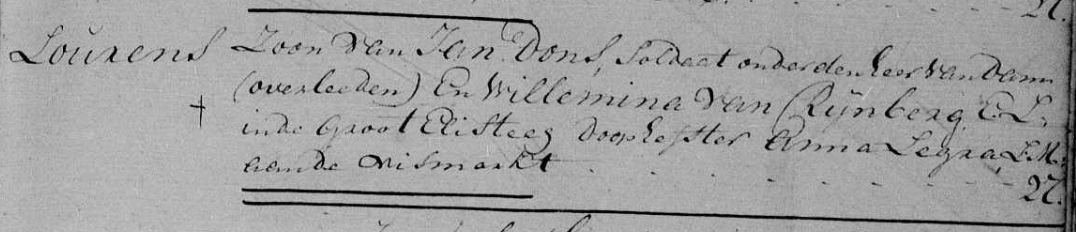 Lourens Zoon van Jan Dons, Soldaat onder den heer van Dam
† (overleeden) En Willemina van Rÿnberg E.L:
inde Groot Elisteeg doophefster Anna Legra, L.M:
aande vismarkt
27.